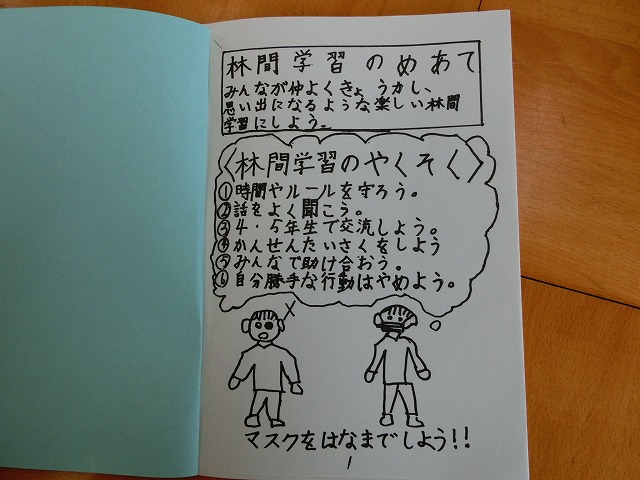 林間学習のめあて
みんなが仲よくきょうカし、
思い出になるような楽しい林間
学習にしよう。
〈林間学習のやくそく〉
①時間やルールを守ろう。
②話をよく聞こう。
③4・5年生で交流しよう。
④かんせんたいさくをしよう
⑤みんなで助け合おう。
⑥自分勝手な行動はやめよう。
マスクをはなまでしよう!!
1